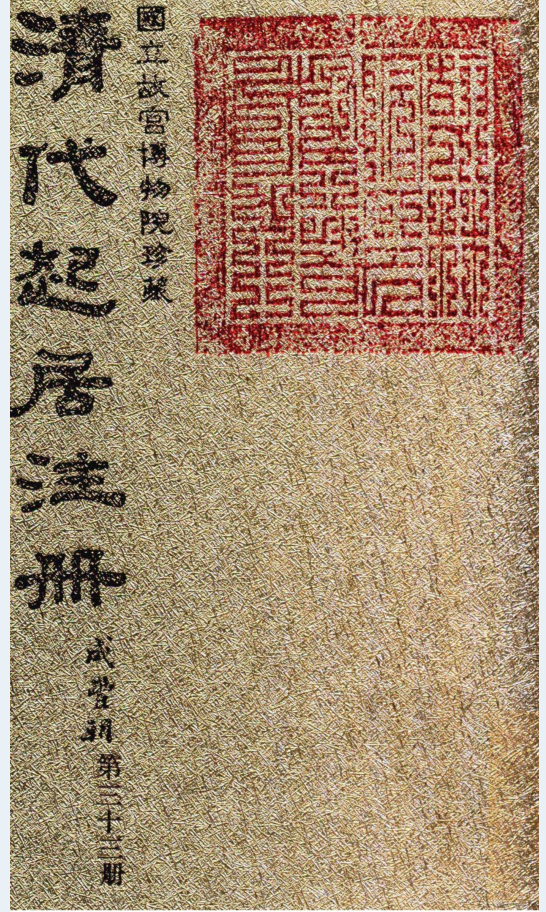 國立故宮博物院珍藏
清代起居注冊
咸豐朝第三十三册